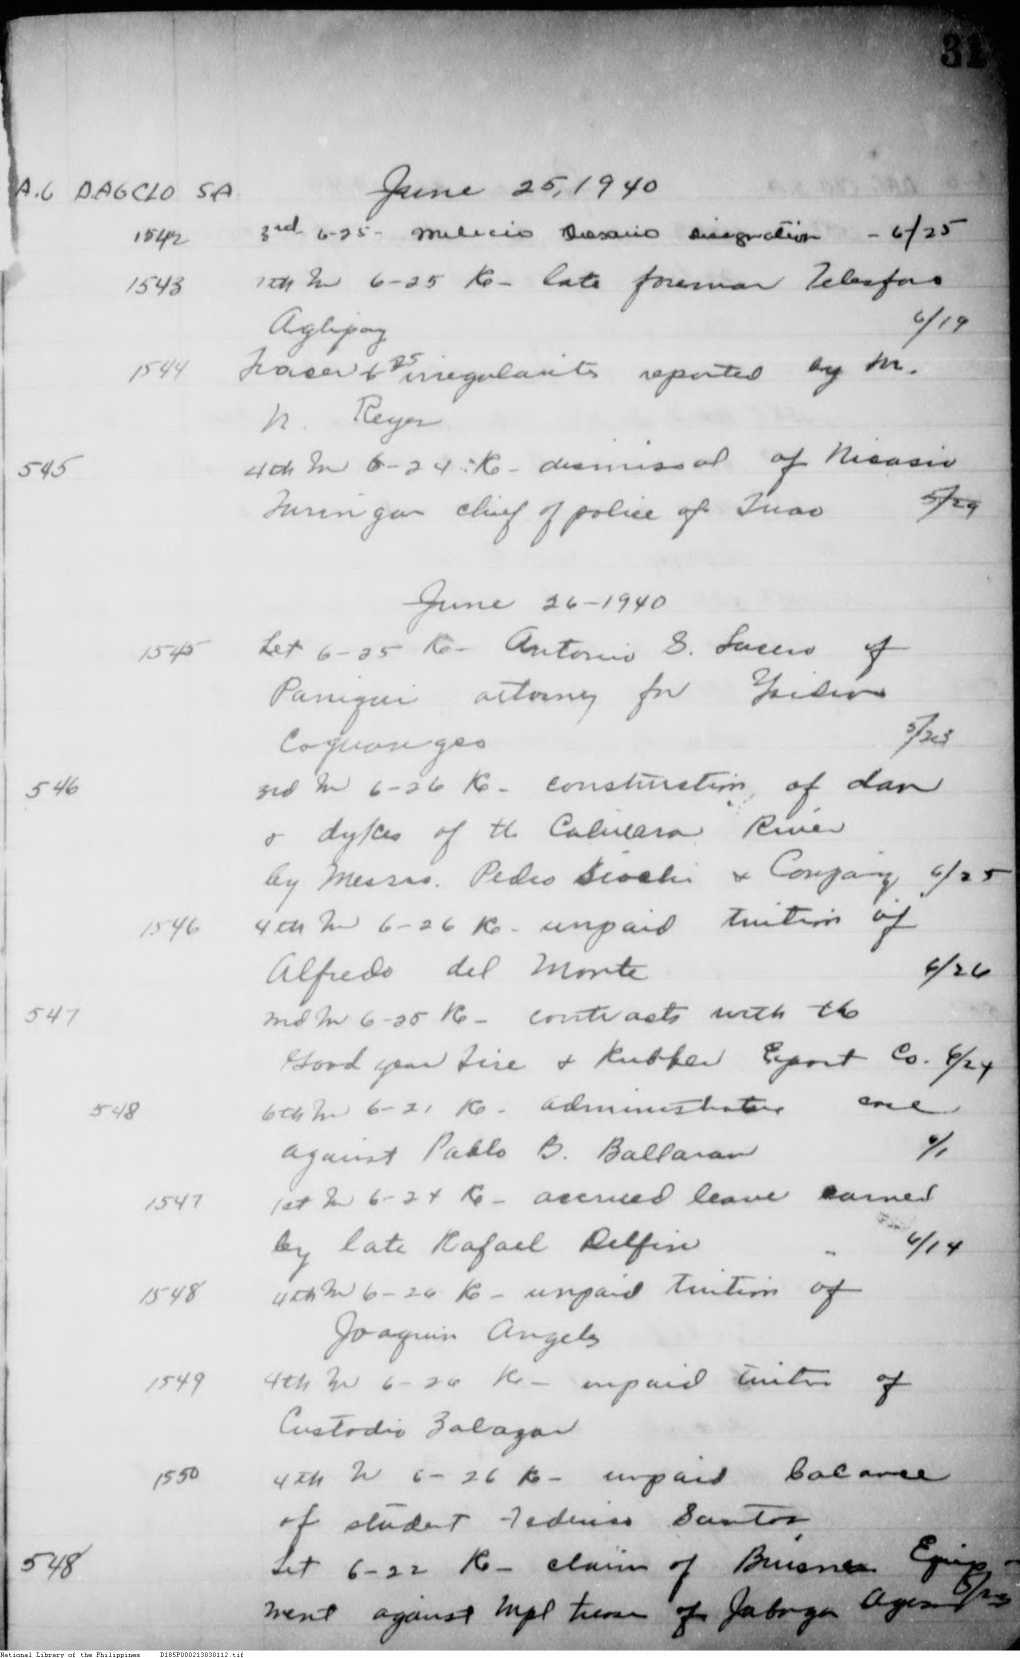 31
A.G DAGCLO SA June 25, 1940
1542 3rd 6-25- Melecio Rosario designation - 6/25
1543 7th In 6-25 Re- late foreman Telesforo
Aglipay 6/19
1544 Tracer 6-25 irregularities reported by M.
N. Reyes
545 4th In 6-24 Re- dismissal of Nicasio
chief of police of Tuao 5/29
June 26-1940
1545 Let 6-25 Re- Antonio S. Lucero of
Paniqui attorney for Ysidro
Cojuangco 5/23
546 3rd In 6-26 Re- construction of dam
& dykes of the River
by Messrs. Pedro Siochi & Company 6/25
1546 4th In 6-26 Re- unpaid tuition of
Alfredo del Monte 6/26
547 2nd In 6-25 Re- contracts with the
Good year Tire & Rubber Export Co. 6/24
548 6th In 6-21 Re- administrative case
against Pablo B. Ballaran 6/1
1547 1st In 6-24 Re- accrued leave earned
by late Rafael Delfin 6/14
1548 4th In 6-26 Re- unpaid tuition of
Joaquin Angeles
1549 4th In 6-26 Re- unpaid tuition of
Custodio Zalazar
1550 4th In 6-26 Re- unpaid balance
of student Federico Santos
548 Let 6-22 Re- claim of Business Equip-
ment against Mpl treas of
National Library of the Philippines D185P000213030112.tif